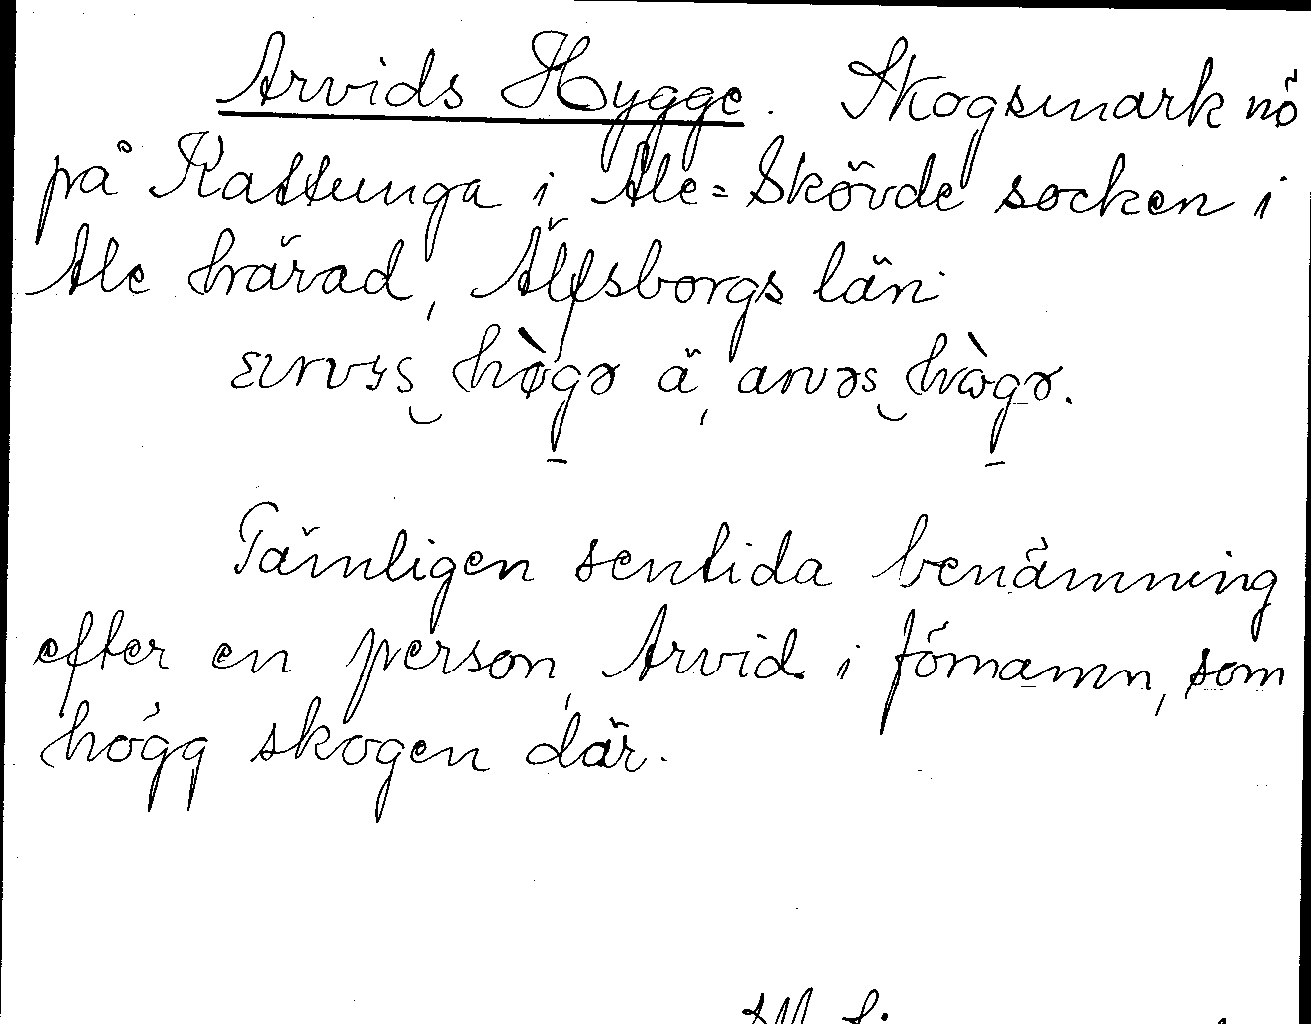 Arvids Hygge. Skogsmark nö
på Kattunga i Ale=Skövde socken i
Ale härad, Älfsborgs län.
hø̀gə ä, arvəs hàgə.
Tämligen sentida benämning
efter en person, Arvid i förnamn, som
högg skogen där.